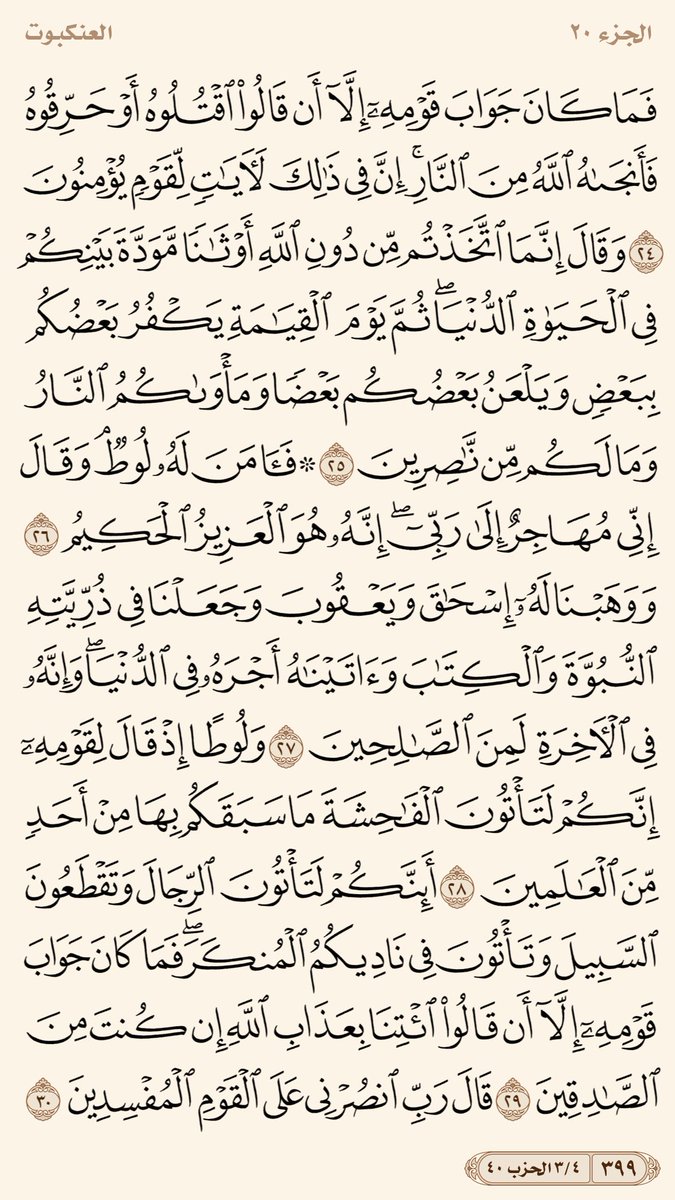 الجزء ٢٠ العنكبوت
فَمَا كَانَ جَوَابَ قَوْمِهِۦٓ إِلَّآ أَن قَالُوا۟ ٱقْتُلُوهُ أَوْ حَرِّقُوهُ
فَأَنجَىٰهُ ٱللَّهُ مِنَ ٱلنَّارِ ۚ إِنَّ فِى ذَٰلِكَ لَـَٔايَـٰتٍ لِّقَوْمٍ يُؤْمِنُونَ
٢٤ وَقَالَ إِنَّمَا ٱتَّخَذْتُم مِّن دُونِ ٱللَّهِ أَوْثَـٰنًا مَّوَدَّةَ بَيْنِكُمْ
فِى ٱلْحَيَوٰةِ ٱلدُّنْيَا ۖ ثُمَّ يَوْمَ ٱلْقِيَـٰمَةِ يَكْفُرُ بَعْضُكُم
بِبَعْضٍ وَيَلْعَنُ بَعْضُكُم بَعْضًا وَمَأْوَىٰكُمُ ٱلنَّارُ
وَمَا لَكُم مِّن نَّـٰصِرِينَ ٢٥ ۞ فَـَٔامَنَ لَهُۥ لُوطٌ ۘ وَقَالَ
إِنِّى مُهَاجِرٌ إِلَىٰ رَبِّىٓ ۖ إِنَّهُۥ هُوَ ٱلْعَزِيزُ ٱلْحَكِيمُ ٢٦
وَوَهَبْنَا لَهُۥٓ إِسْحَـٰقَ وَيَعْقُوبَ وَجَعَلْنَا فِى ذُرِّيَّتِهِ
ٱلنُّبُوَّةَ وَٱلْكِتَـٰبَ وَءَاتَيْنَـٰهُ أَجْرَهُۥ فِى ٱلدُّنْيَا ۖ وَإِنَّهُۥ
فِى ٱلْـَٔاخِرَةِ لَمِنَ ٱلصَّـٰلِحِينَ ٢٧ وَلُوطًا إِذْ قَالَ لِقَوْمِهِۦٓ
إِنَّكُمْ لَتَأْتُونَ ٱلْفَـٰحِشَةَ مَا سَبَقَكُم بِهَا مِنْ أَحَدٍ
مِّنَ ٱلْعَـٰلَمِينَ ٢٨ أَئِنَّكُمْ لَتَأْتُونَ ٱلرِّجَالَ وَتَقْطَعُونَ
ٱلسَّبِيلَ وَتَأْتُونَ فِى نَادِيكُمُ ٱلْمُنكَرَ ۖ فَمَا كَانَ جَوَابَ
قَوْمِهِۦٓ إِلَّآ أَن قَالُوا۟ ٱئْتِنَا بِعَذَابِ ٱللَّهِ إِن كُنتَ مِنَ
ٱلصَّـٰدِقِينَ ٢٩ قَالَ رَبِّ ٱنصُرْنِى عَلَى ٱلْقَوْمِ ٱلْمُفْسِدِينَ ٣٠
٣٩٩ ٣/٤ الحزب ٤٠